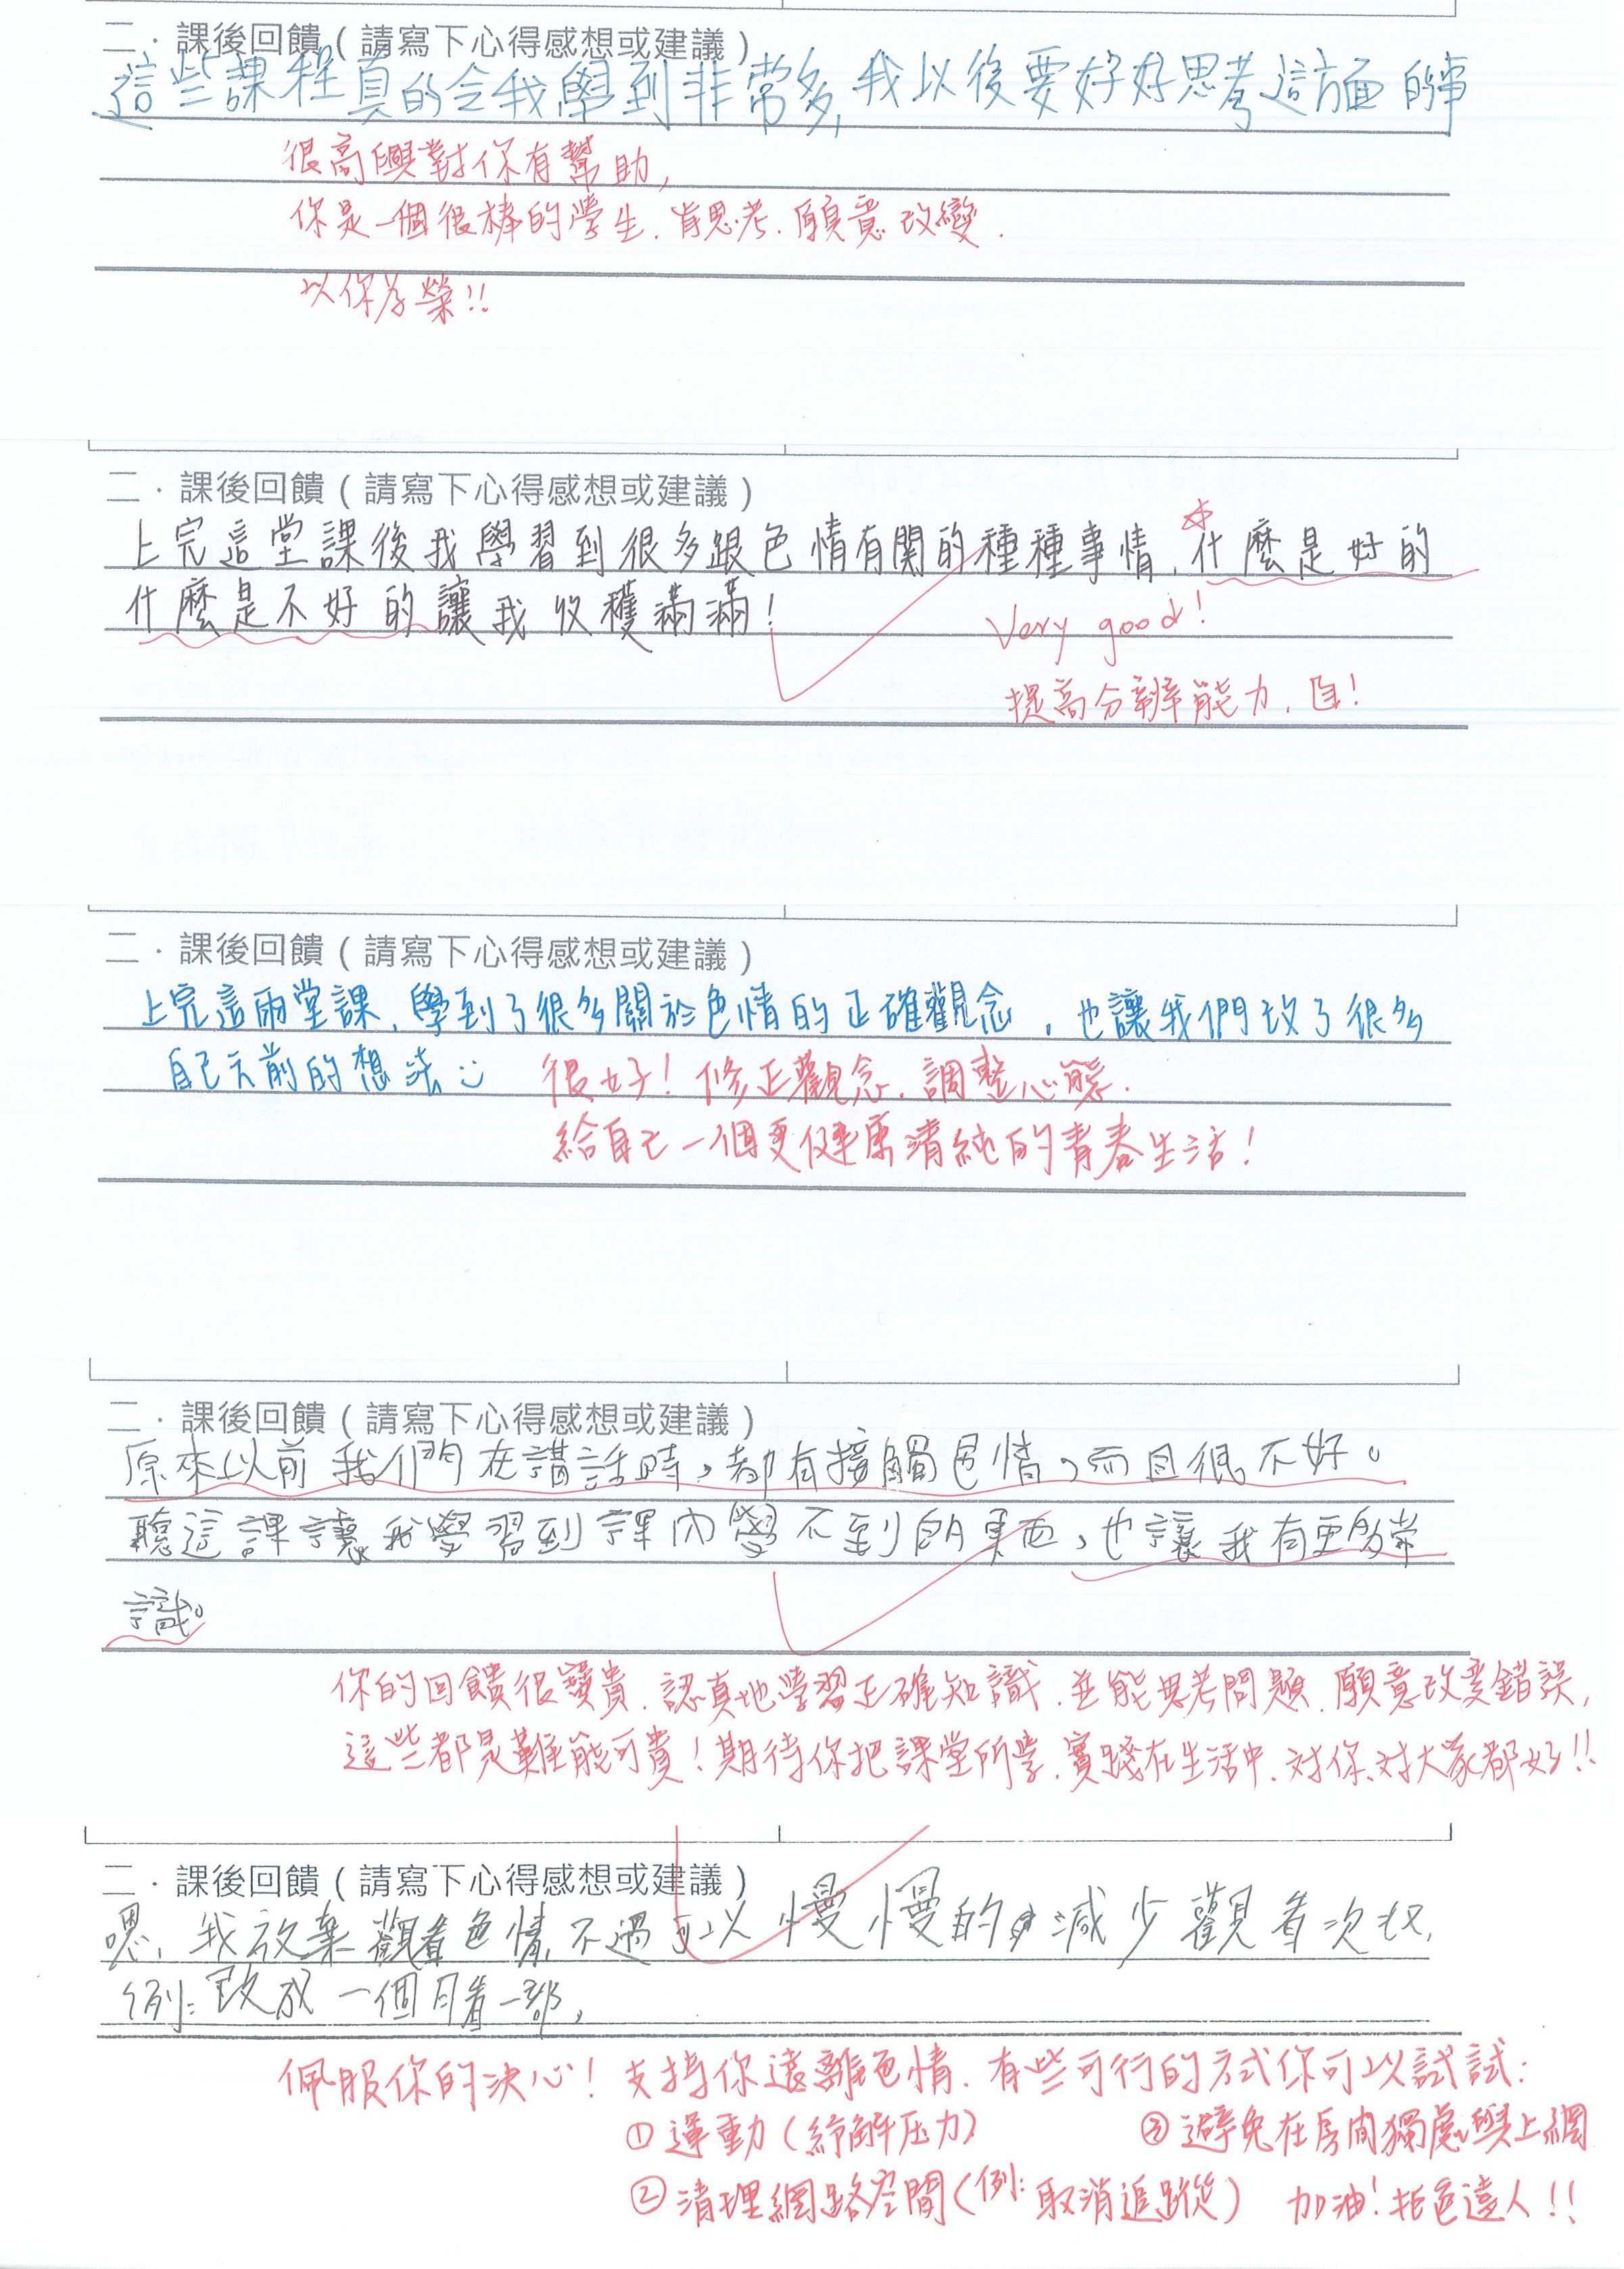 二．課後回饋（請寫下心得感想或建議）
這些課程真的令我學到非常多,我以後要好好思考這方面的事
很高興對你有幫助,
你是一個很棒的學生.肯思考.願意改變.
以你為榮!!
二．課後回饋（請寫下心得感想或建議）
上完這堂課後我學習到很多跟色情有関的種種事情,什麼是好的
什麼是不好的讓我收穫滿滿!
Very good!
提高分辨能力,自!
二．課後回饋（請寫下心得感想或建議）
上完這兩堂課,學到了很多關於色情的正確觀念,也讓我們改了很多
自己以前的想法
很好!修正觀念.調整心態.
給自己一個更健康清純的青春生活!
二．課後回饋（請寫下心得感想或建議）
原來以前我們在講話時,都有接觸色情,而且很不好。
聽這課讓我學習到課內學不到的東西,也讓我有更多常
識。
你的回饋很寶貴.認真地學習正確知識.並能思考問題.願意改變錯誤,
這些都是難能可貴!期待你把課堂所學.實踐在生活中.対你.対大家都好!!
二．課後回饋（請寫下心得感想或建議）
嗯,我放棄觀看色情,不過可以慢慢的減少觀看次
例:改成一個月看一部,
佩服你的決心!支持你遠離色情.有些可行的方式你可以試試:
①運動(紓解压力) ③避免在房間獨處與上網
②清理網路空間(例:取消追蹤) 加油!拒色達人!!